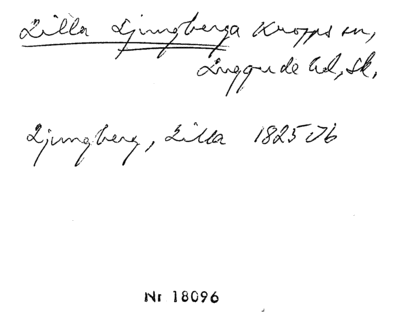 Lilla Ljungberga Kropps sn,
Luggude hd, Sk.
Ljungberg, Lilla 1825 Jb
Nr 18096